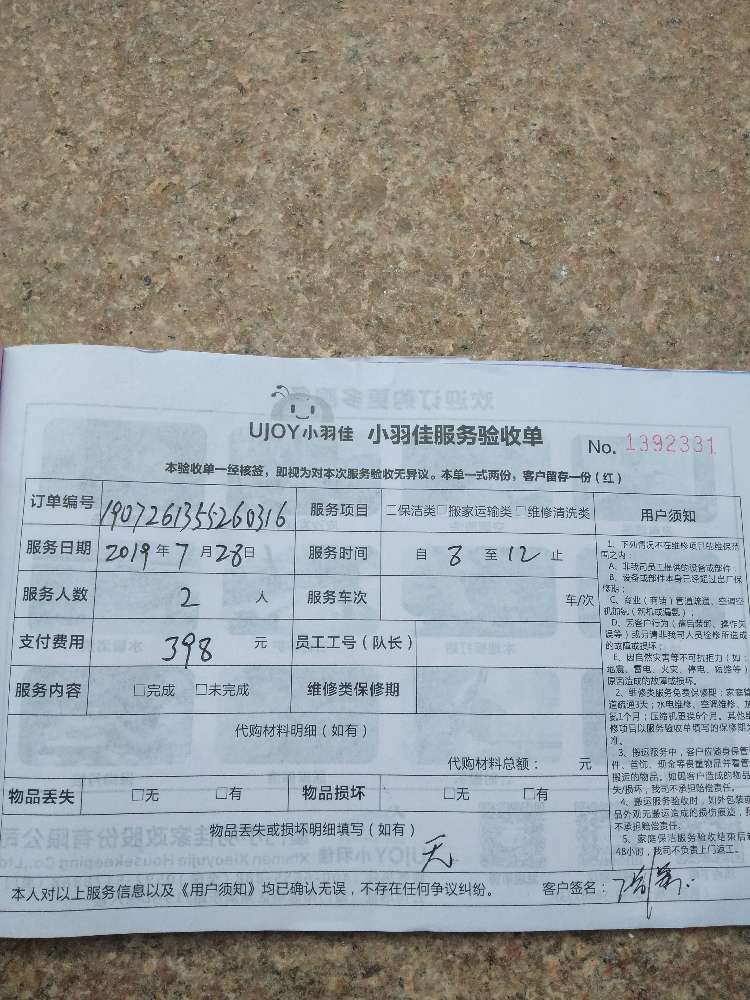 UJOY小羽佳 小羽佳服务验收单
No. 1392331
本验收单一经核签，即视为对本次服务验收无异议。本单一式两份，客户留存一份（红）
订单编号 1907261355260316 服务项目 □保洁类□搬家运输类□维修清洗类 用户须知
服务日期 2019年7月28日 服务时间 自 8 至 12 止
服务人数 2 人 服务车次 车/次
支付费用 398 元 员工工号（队长）
服务内容 □完成 □未完成 维修类保修期
代购材料明细（如有）
代购材料总额： 元
物品丢失 □无 □有 物品损坏 □无 □有
物品丢失或损坏明细填写（如有）
无
本人对以上服务信息以及《用户须知》均已确认无误，不存在任何争议纠纷。 客户签名：
1、下列情况不在维修项目的维保范
围之内：
A、非我司员工提供的设备或部件；
B、设备或部件本身已经超过出厂保
修期；
C、商业（商铺）管道疏通、空调空
D、因客户行为（信
误等）或另请非我司人员检修所造成
的故障或损坏；
E、因自然灾害等不可抗拒力（如：
地震、雷电、火灾、停电、
原因造成的故障或损坏。
2、维修类服务免费保修期：家庭管
道疏通3天；水电维修、空调维修、加
氨1个月；压缩机更换6个月。其他维
修项目以服务验收单填写的保修期为
准。
3、搬运服务中，客户应随身保管
件、首饰、现金等贵重物品并看管
搬运的物品。如因客户造成的物品
失/损坏，我司不承担赔偿责任。
4、搬运服务验收时，如外包装或
品外观无搬运造成的损伤痕迹，我
不承担赔偿责任。
5、家庭保洁服务验收结束后超
48小时，我司不负责上门返工。